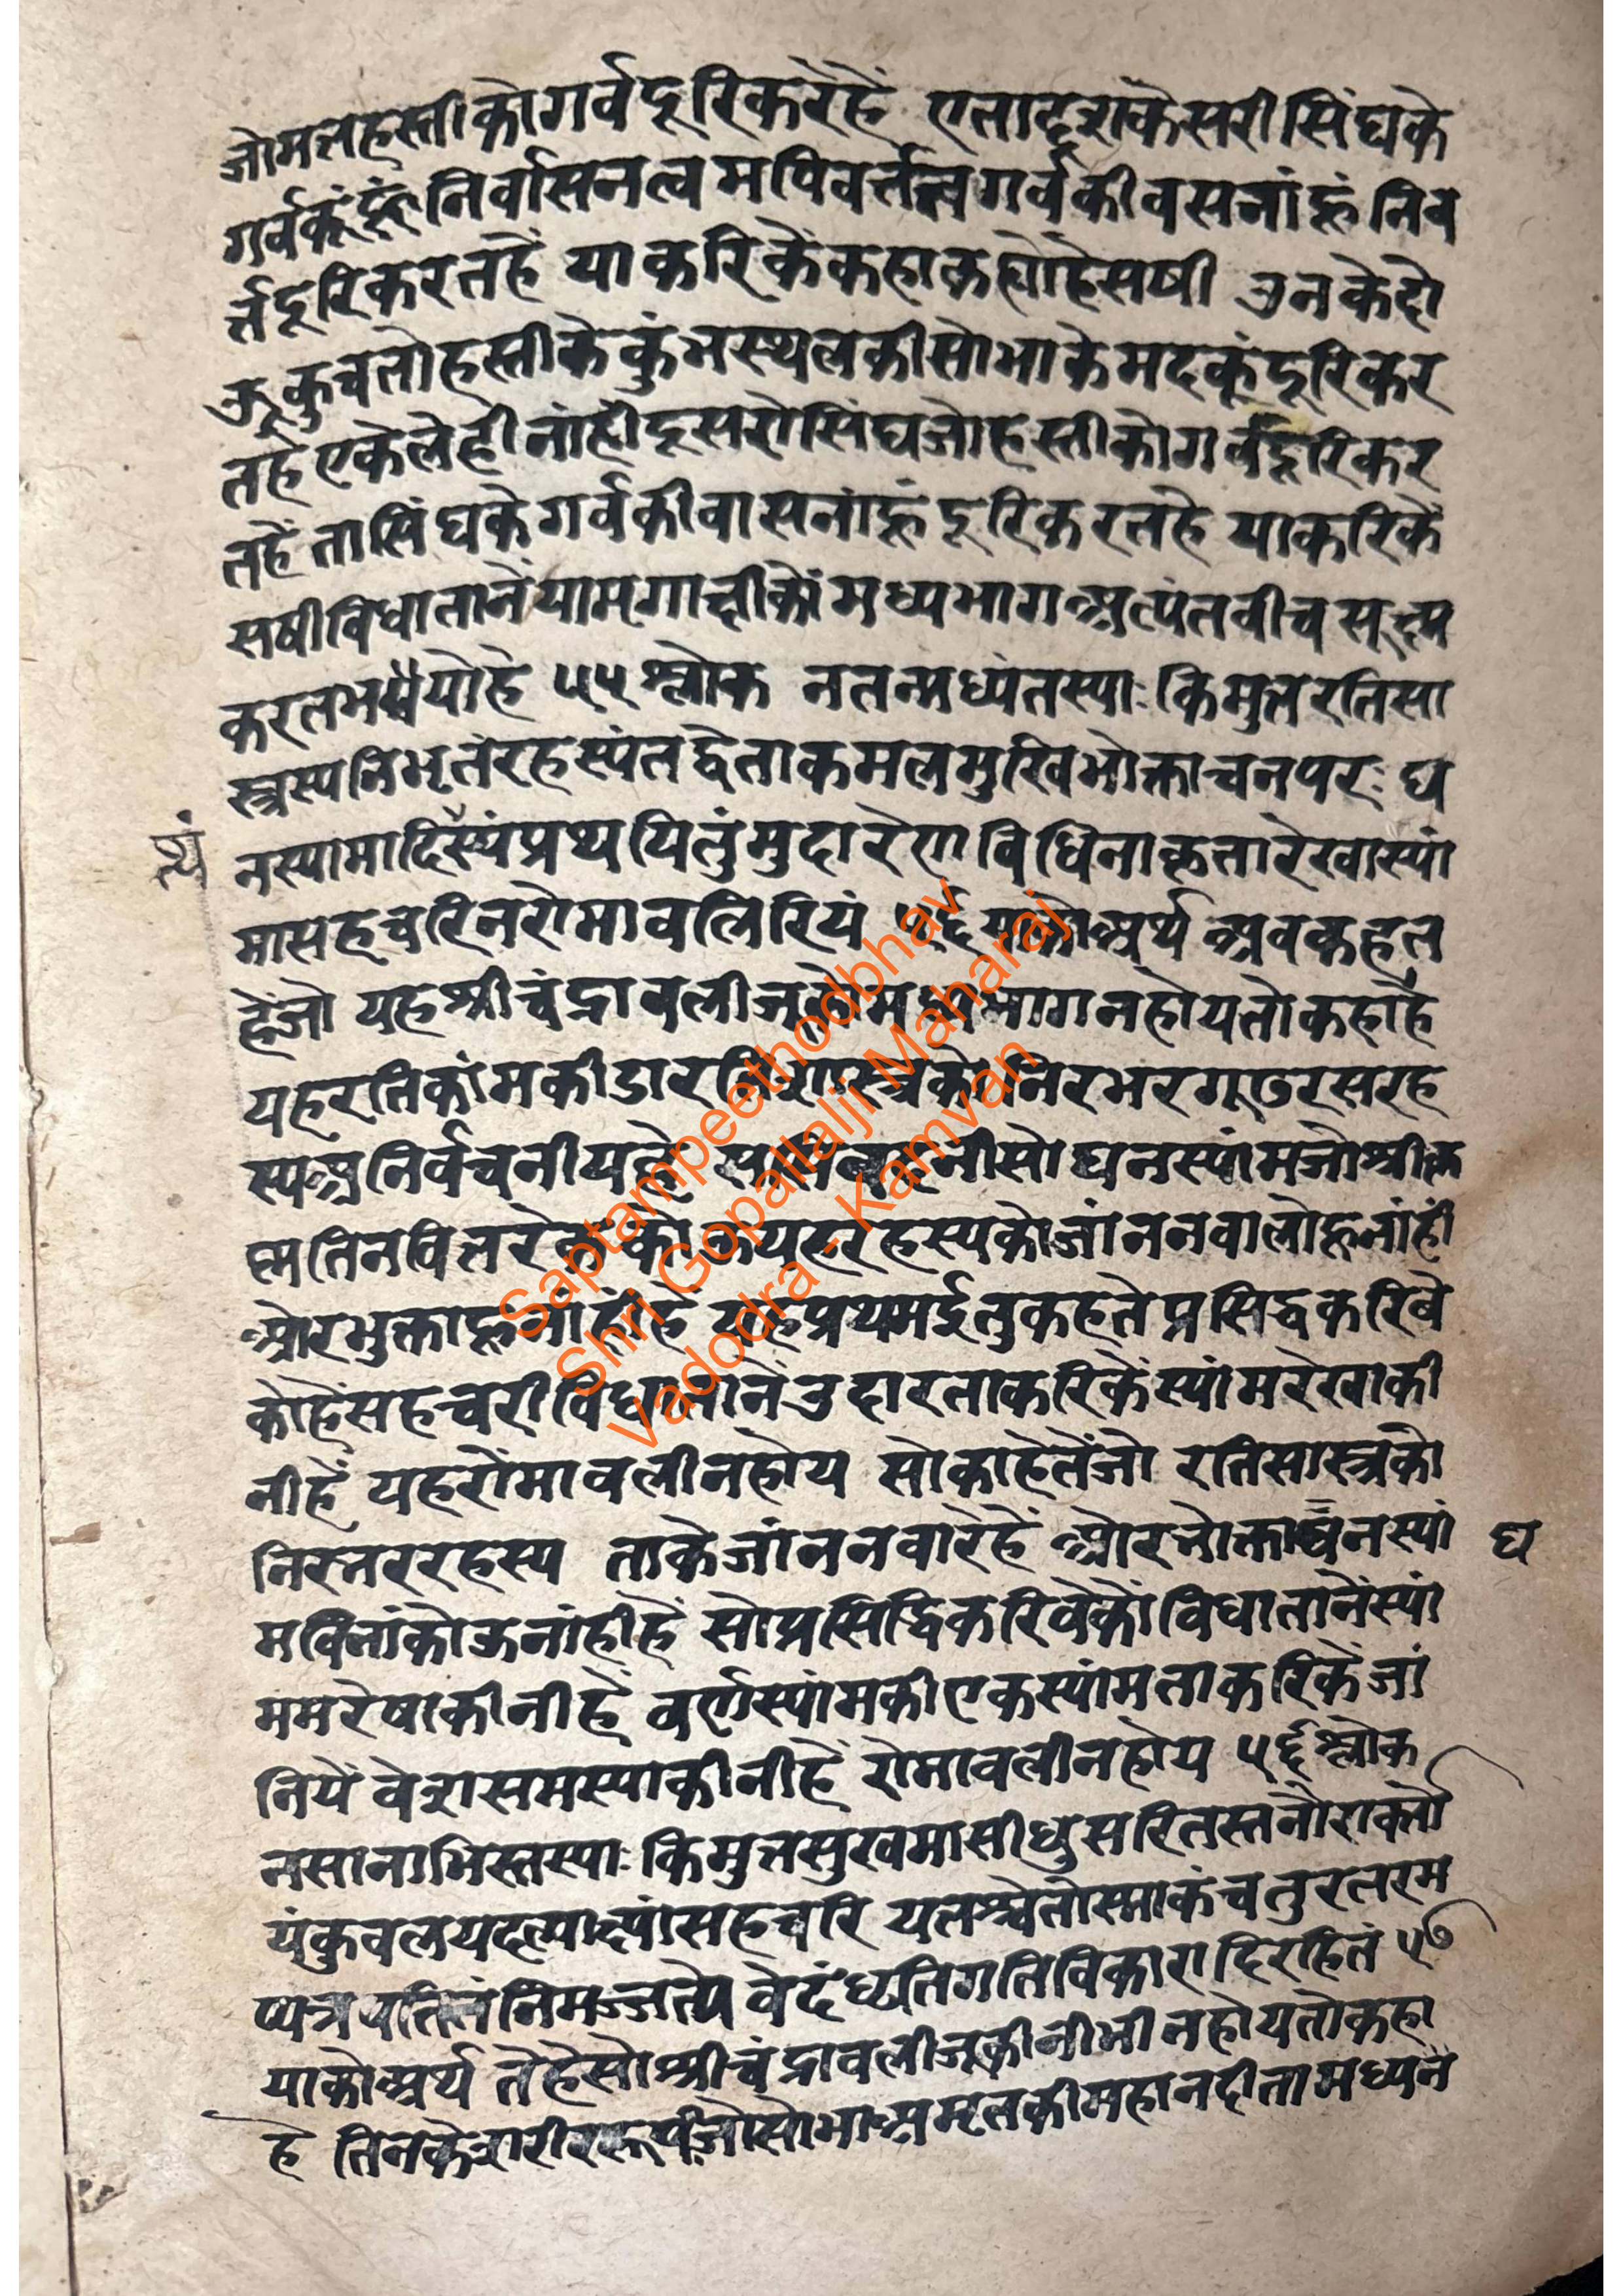 जोमत्तहस्तीकोगर्वदूरिकरेहैं एतादृशकेसरीसिंघके
गर्वकूंहूंनिर्वासनत्वमपिवर्त्ततगर्वकीवसनांहूंनिव
र्त्तदूरिकरतहैं याकरिकेंकहाकह्योहेसषी उनकेदो
ऊकुचतोहस्तीकेकुंभस्थलकीसोभाकेमदकूंदूरिकर
तहेएकेलेहीनांहीदूसरोसिंघजोहस्तीकोगर्वदूरिकर
तहेंतासिंघकेगर्वकीवासनांहूंदूरिकरतहे याकरिकें
सषीविधातानेंयामृगाक्षीकोंमध्यभागअत्यंतवीचसूक्ष्म
करतभयोहे ५५ श्लोक नतन्मध्यंतस्याः किमुतरतिसा
स्त्रस्यनिभृतंरहस्यंतद्वेत्ताकमलमुखिभोक्ताचनपरः घ
नस्यामादिस्यंप्रथयितुंमुदारेणविधिनाकृतारेखास्यां
त्थं
मासहचरिनरोमावलिरियं ५६ याकोअर्थ अवकहत
हेंजो यहश्रीचंद्रावलीजूकोमध्यभागनहोयतोकहाहै
यहरतिकांमकीडारतिशास्त्रकोनिरभरगूढरसरह
स्यअनिर्वचनीयहे घनस्यांमजोश्रीकृ
ष्णतिनवि यहरहस्यकोजांननवालोहूनांहीं
औरभुक्ताहूनांहींहे यहप्रथमईतुकहतेप्रसिद्धकरिवे
कोहेंसहचरीविधातानेंउदारताकरिकेंस्यांमरेखाकी
नीहें यहरोंमावलीनहोय सोकाहेतेंजो रतिसास्त्रको
निरन्तररहस्य ताकेजांननवारेहें औरभोक्ताघनस्यां
घ
मविनांकोऊनांहीहें सोप्रसिद्धिकरिवेकोंविधातानेंस्यां
ममरेषाकीनीहें वर्णस्यांमकीएकस्यांमताकरिकेंजां
नियें वेशसमस्याकीनीहें रोमावलीनहोय ५६ श्लोक
नसानाभिस्तस्याः किमुतसुखमासीधुसरितस्तनौरावर्त्तो
यंकुवलयदत्याक्ष्यांसहचरि यतश्चेतोस्माकंचतुरतरम
प्यत्रपतितंनिमज्जत्येवेदंघ्यतिगतिविकारादिरहितं ५७
याकोअर्थ तेहेसोश्रीचंद्रावलीजूकीनीभीनहोयतोकहा
हे तिनकेशरीररूपीजोसोभाअमृतकीमहानदीतामध्यन
Saptampeethodbhav
Shri Gopallalji Maharaj
Vadodra - Kamvan